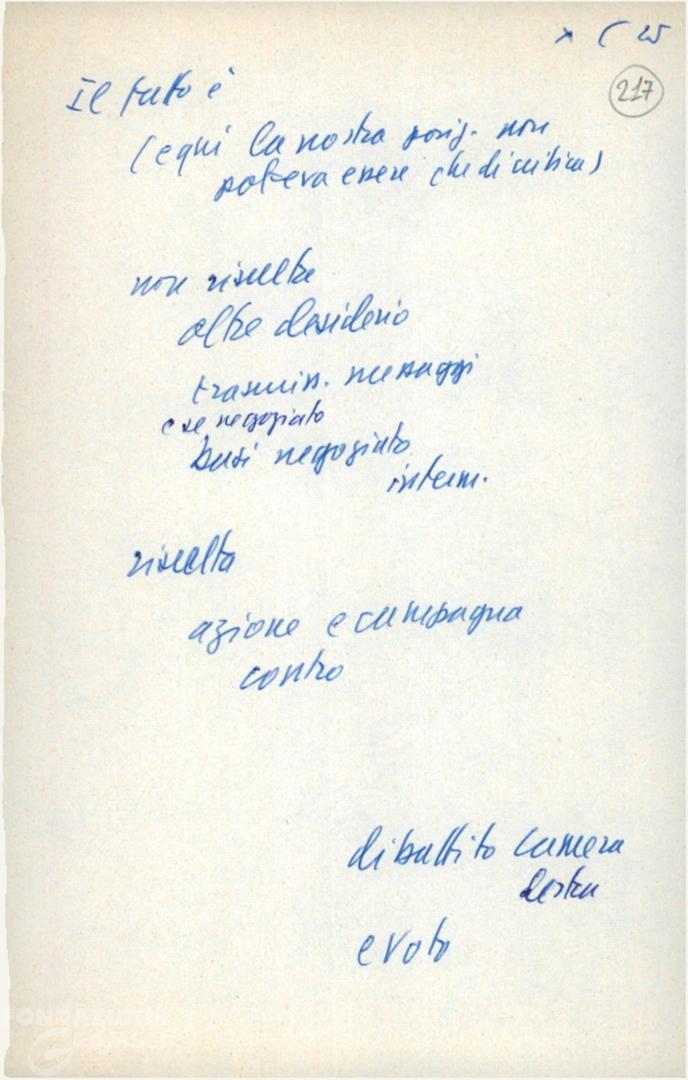 217
Il fatto è
(e qui la nostra posiz. non
poteva essere che di critica)
non risulta
oltre desiderio
trasmiss. messaggi
e se negoziato
basi negoziato
interm.
risulta
azione e campagna
contro
dibattito Camera
destra
e voto
FONDAZIONE
GRAMSCI